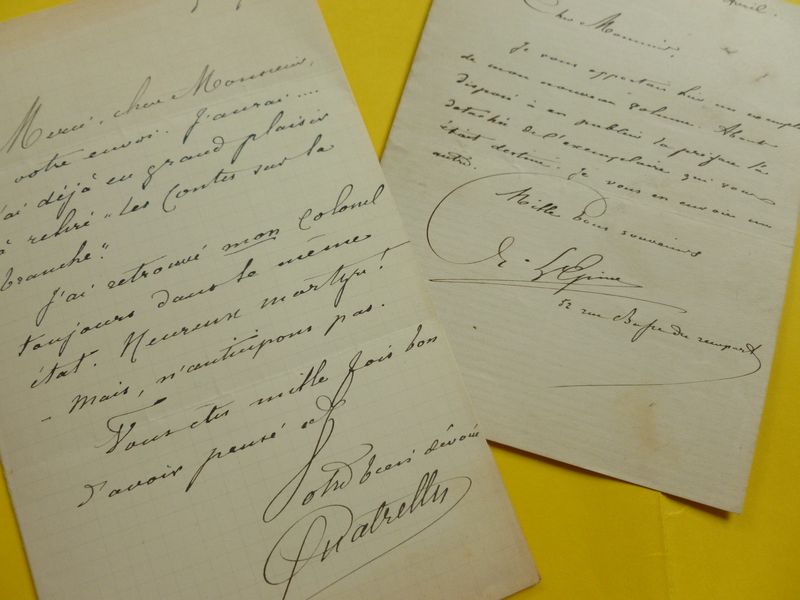 Merci, cher Monsieur,
votre envoi. J'aurai....
j'ai déjà eu grand plaisir
à relire "Les Contes sur la
branche".
J'ai retrouvé mon colonel
toujours dans le même
état. Heureux martyr!
- Mais, n'anticipons pas.
Vous êtes mille fois bon
d'avoir pensé
Votre bien dévoué
Quatrelles
avril.
Cher Monsieur,
Je vous apportais hier un exempl
de mon nouveau volume.
disposé à en publier la préface l'a
détachée de l'exemplaire qui vous
était destiné. Je vous en envoie un
autre.
Mille bons souvenirs
E. LÉpine
52 rue Basse du rempart